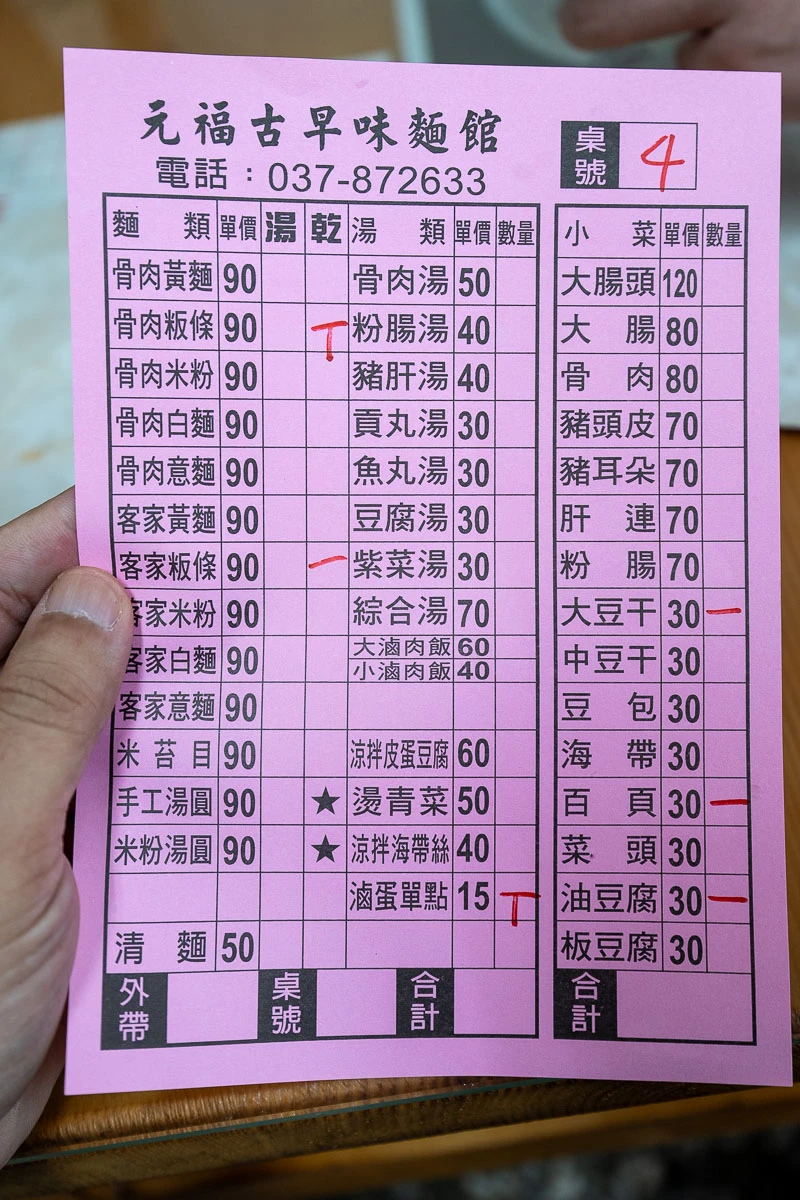 元福古早味麵館
電話：037-872633
桌號 4
麵類 單價 湯 乾 湯類 單價 數量 小菜 單價 數量
骨肉黃麵 90 骨肉湯 50 大腸頭 120
骨肉粄條 90 T 粉腸湯 40 大腸 80
骨肉米粉 90 豬肝湯 40 骨肉 80
骨肉白麵 90 貢丸湯 30 豬頭皮 70
骨肉意麵 90 魚丸湯 30 豬耳朵 70
客家黃麵 90 豆腐湯 30 肝連 70
客家粄條 90 一 紫菜湯 30 粉腸 70
客家米粉 90 綜合湯 70 大豆干 30 一
客家白麵 90 大滷肉飯 60 中豆干 30
小滷肉飯 40
客家意麵 90 豆包 30
米苔目 90 涼拌皮蛋豆腐 60 海帶 30
手工湯圓 90 ★ 燙青菜 50 百頁 30 一
米粉湯圓 90 ★ 涼拌海帶絲 40 菜頭 30
滷蛋單點 15 T 油豆腐 30 一
清麵 50 板豆腐 30
外帶 桌號 合計 合計